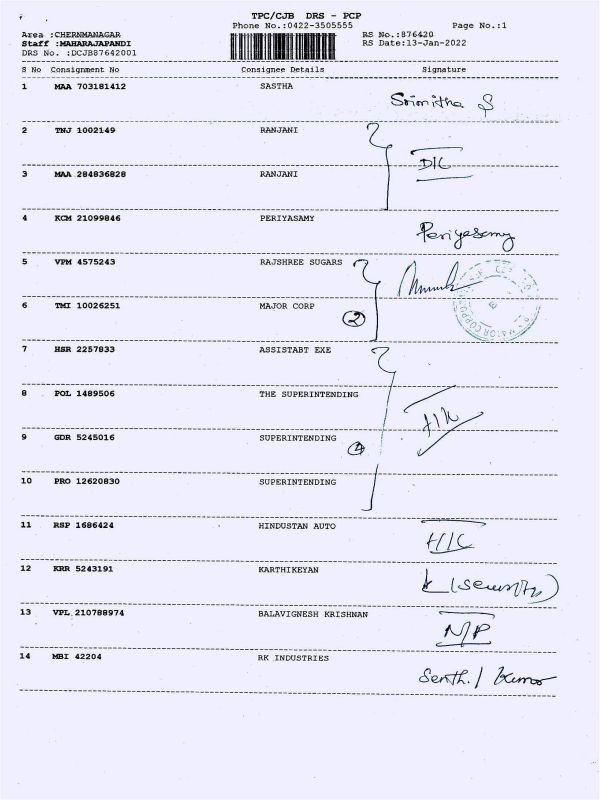 TPC/CJB DRS - PCP
Phone No.:0422-3505555 Page No.:1
Area :CHERNMANAGAR RS No.:876420
Staff :MAHARAJAPANDI RS Date:13-Jan-2022
DRS No. :DCJB87642001
S No Consignment No Consignee Details Signature
1 MAA 703181412 SASTHA
Srimitha S
2 TNJ 1002149 RANJANI
D/C
3 MAA 284836828 RANJANI
4 KCM 21099846 PERIYASAMY
Periyasamy
5 VPM 4575243 RAJSHREE SUGARS
6 TMI 10026251 MAJOR CORP
2
7 HSR 2257833 ASSISTABT EXE
8 POL 1489506 THE SUPERINTENDING
9 GDR 5245016 SUPERINTENDING
4
10 PRO 12620830 SUPERINTENDING
11 RSP 1686424 HINDUSTAN AUTO
H/C
12 KRR 5243191 KARTHIKEYAN
(Security)
13 VPL 210788974 BALAVIGNESH KRISHNAN
N/P
14 MBI 42204 RK INDUSTRIES